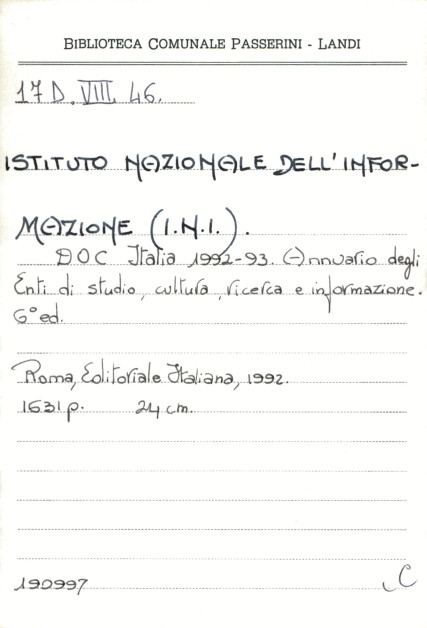 BIBLIOTECA COMUNALE PASSERINI - LANDI
17 D. VIII. 46.
ISTITUTO NAZIONALE DELL'INFOR-
MAZIONE (I.N.I.).
DOC Italia 1992-93. Annuario degli
Enti di studio, cultura, ricerca e informazione.
6° ed.
Roma, Editoriale Italiana, 1992.
1631 p. 24 cm.
190997 C